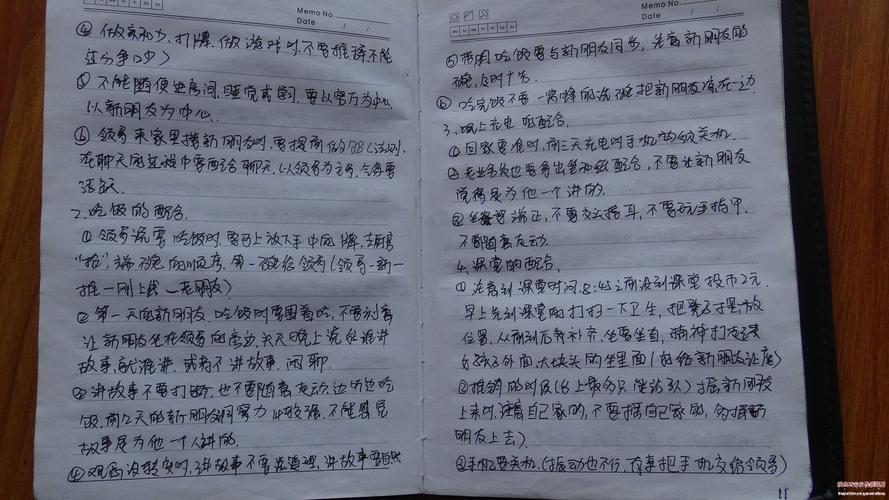 Memo No.
Date / /
④ 做亲和力，打牌，做游戏时，不要推辞不能
过分争(吵)
⑤ 不能随便进房间，睡觉或学习，要以客厅为中心，
以新朋友为中心。
⑥ 领导来家里接新朋友时，要提前做
在聊天的过程中要配合聊天，以领导为主导，气氛要
活跃
2、吃饭的配合。
① 领导说要吃饭时，要马上放下手中的牌，
端碗的顺序，第一碗给领导(领导一新一
推一刚上线一老朋友)
② 第一天的新朋友，吃饭时要围着吃，不要刻意
让新朋友坐在领导的旁边，头天晚上说好谁讲
故事就谁讲，或者不讲故事，闲聊。
③ 讲故事不要打断，也不要随意走动，边听边吃
饭，前2天的新朋友洞察力比较强，不能感觉
故事是为他一个人讲的。
④ 观念没转变时，讲故事不要说道理，讲故事要自然
Memo No.
Date / /
⑤ 吃饭要与新朋友同步，先看新朋友的
碗，
⑥ 吃完饭不要一窝蜂的洗碗把新朋友凉在一边
3、晚上充电的配合。
① 回家要准时，前三天充电时手机必须关机。
② 也要多出答和给配合，不要让新朋友
觉得是为他一个讲的。
③ 坐姿端正，不要交头接耳，不要玩手指甲，
不要随意走动。
4、课堂的配合。
① 注意到课堂时间，8:45之前没到课堂投币2元
早上先到课堂的打扫一下卫生，把凳子摆放
位置，从前到后补齐，坐要坐直，精神打起来
女孩子外面，大块头的坐里面(好给新朋友让座)
② 推销的时候(台上气氛只能站3次)掘新朋友
上来时，注意自己家的，不要掘自己家的，
朋友上去)
③ 手机要关机(振动也不行，有事把手机交给领导)
11